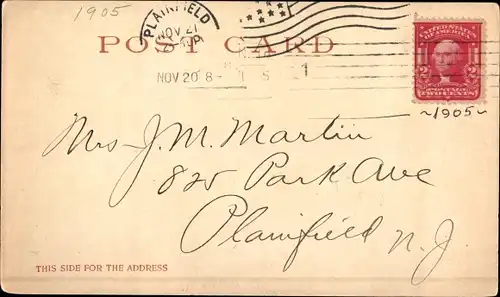 1905
PLAINFIELD
NOV 21
POST CARD
NOV 20 8-
1905
UNITED STATES OF AMERICA
POSTAGE
2 TWO CENTS 2
~1905~
Mrs. J. M. Martin
825 Park Ave
Plainfield
N. J.
THIS SIDE FOR THE ADDRESS